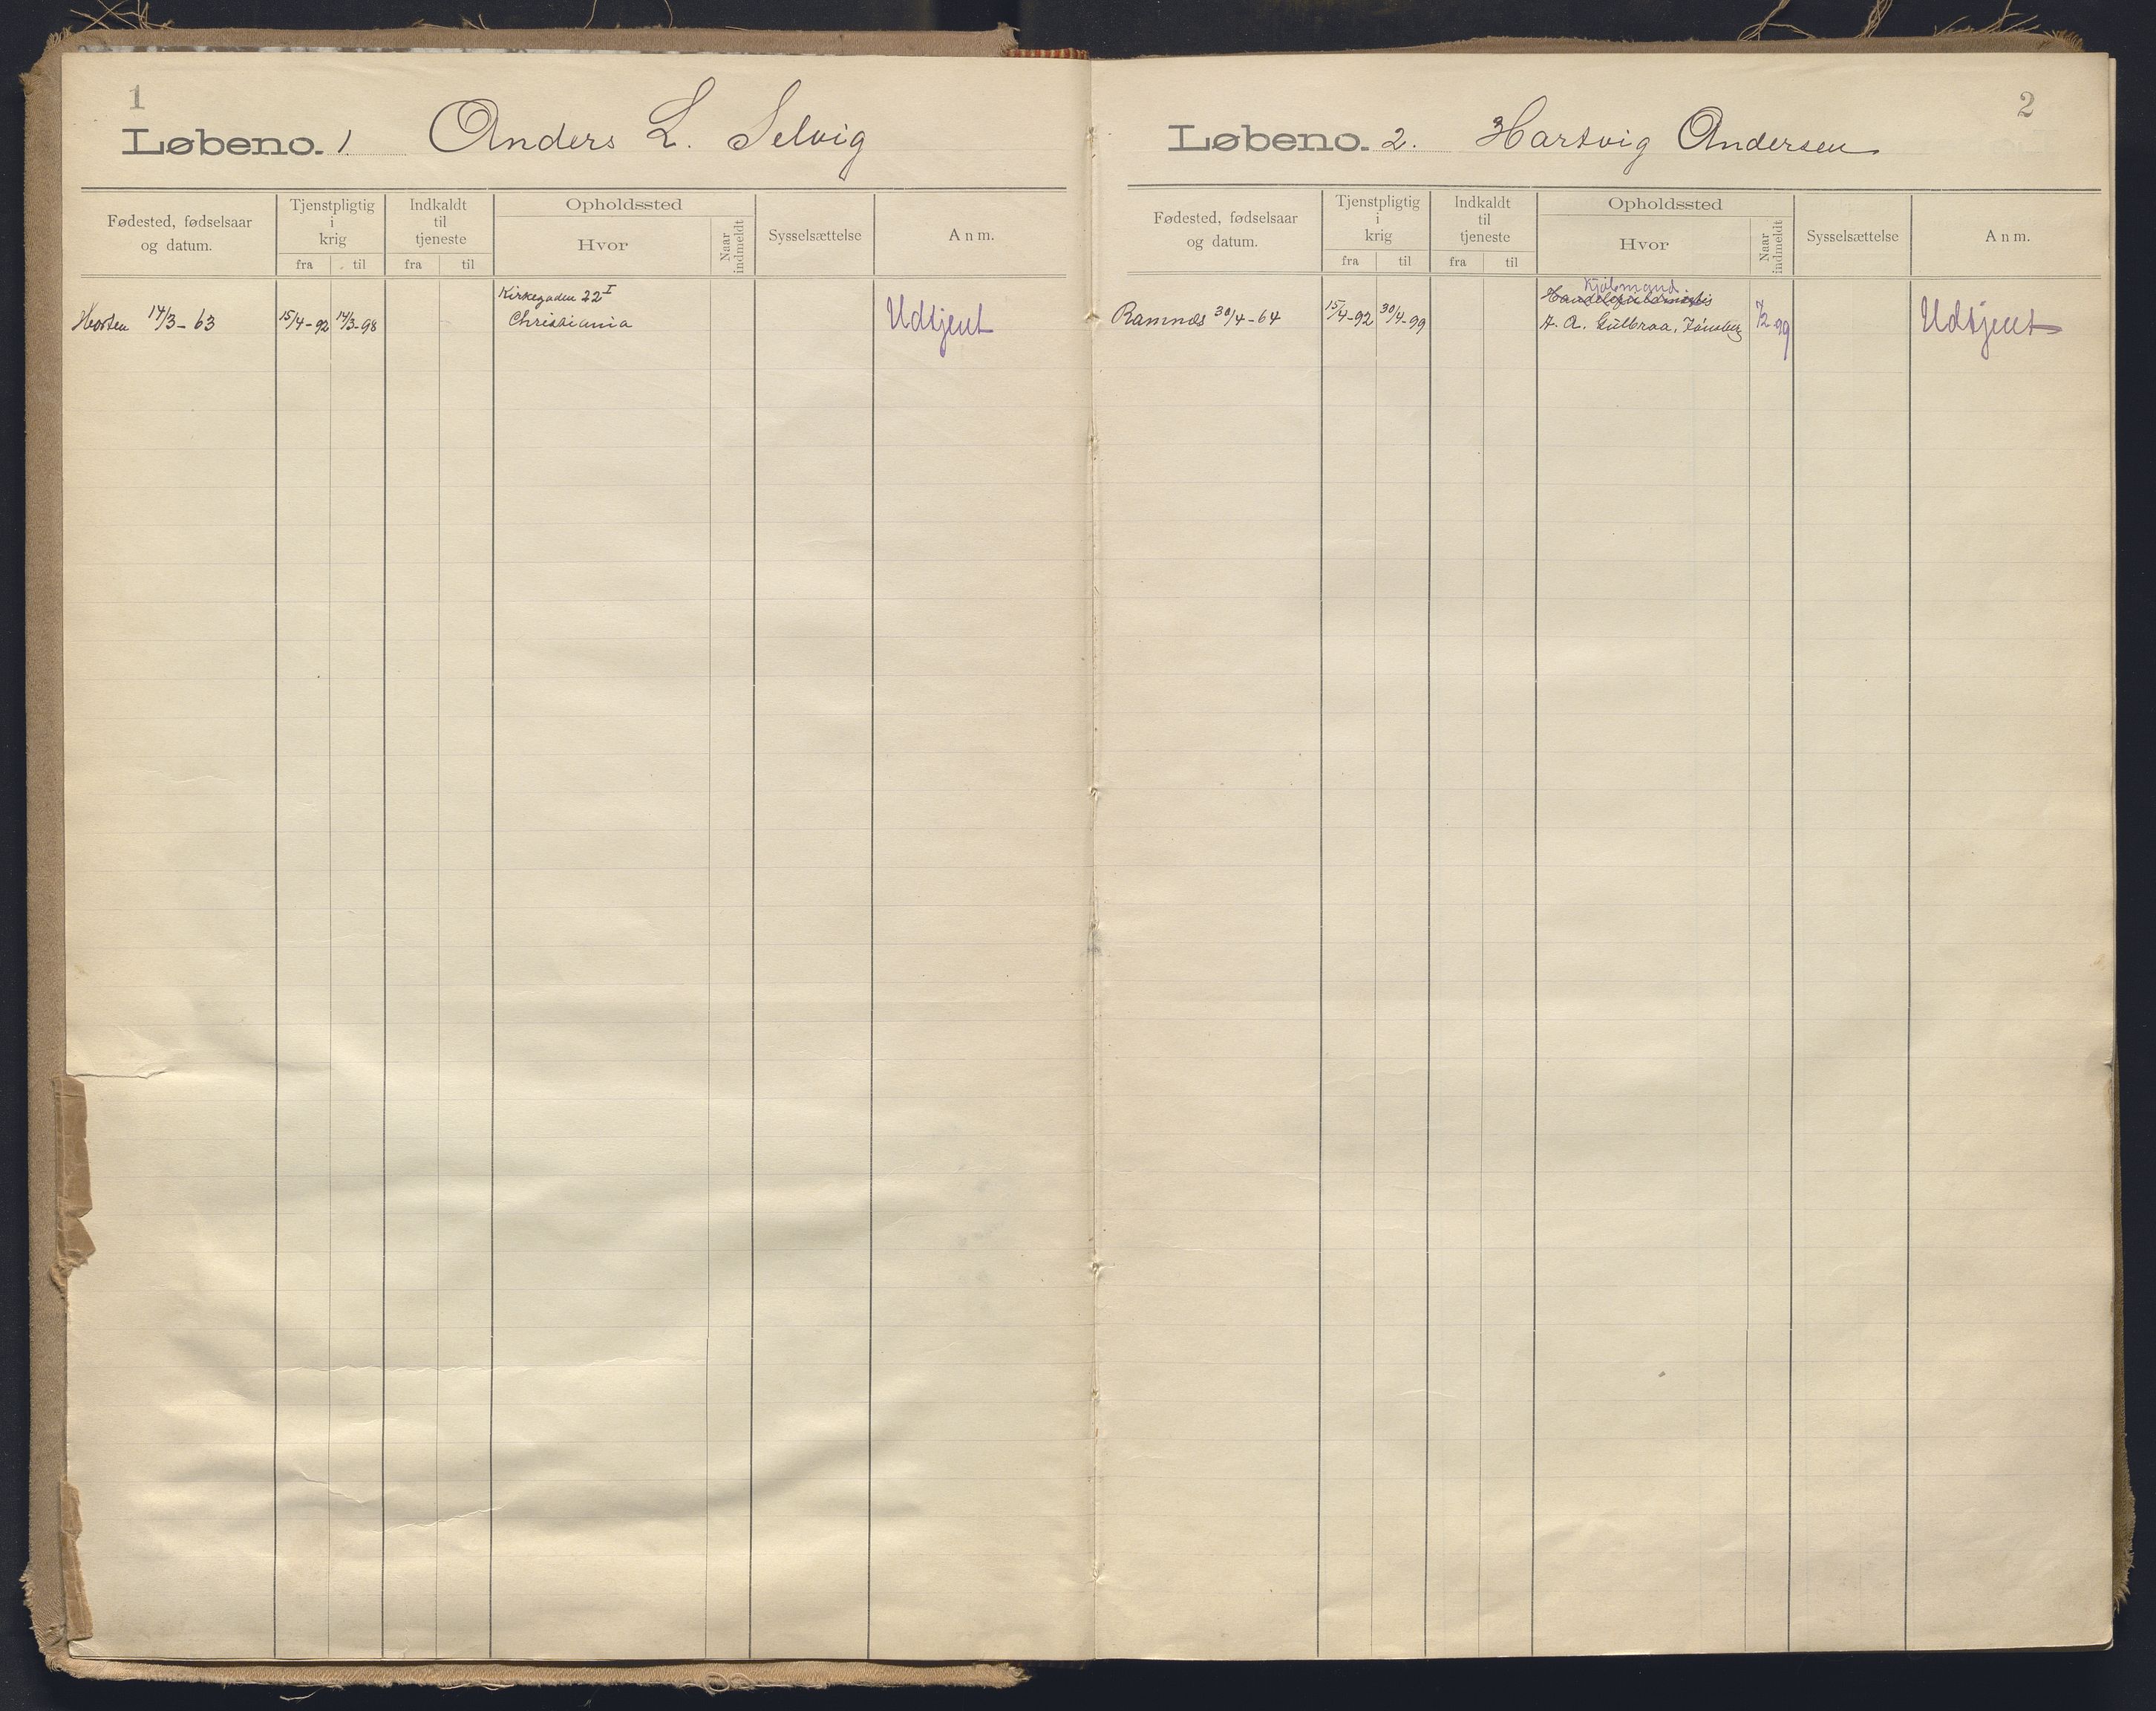 1
Løbeno. 1. Anders L. Selvig
Fødested, fødselsaar og datum.
Tjenstpligtig i krig
fra til
Indkaldt til tjeneste
fra til
Opholdssted
Hvor
Naar indmeldt
Sysselsættelse
Anm.
Horten 14/3-63
15/4-92 14/3-98
Kirkegaden 22 I
Christiania
Udtjent
2
Løbeno. 2. Hartvig Andersen
Fødested, fødselsaar og datum.
Tjenstpligtig i krig
fra til
Indkaldt til tjeneste
fra til
Opholdssted
Hvor
Naar indmeldt
Sysselsættelse
Anm.
Ramnæs 30/4-64
15/4-92 30/4-99
Kjøbmand
A. Gulbraa, Tønsberg
7/2 99
Udtjent